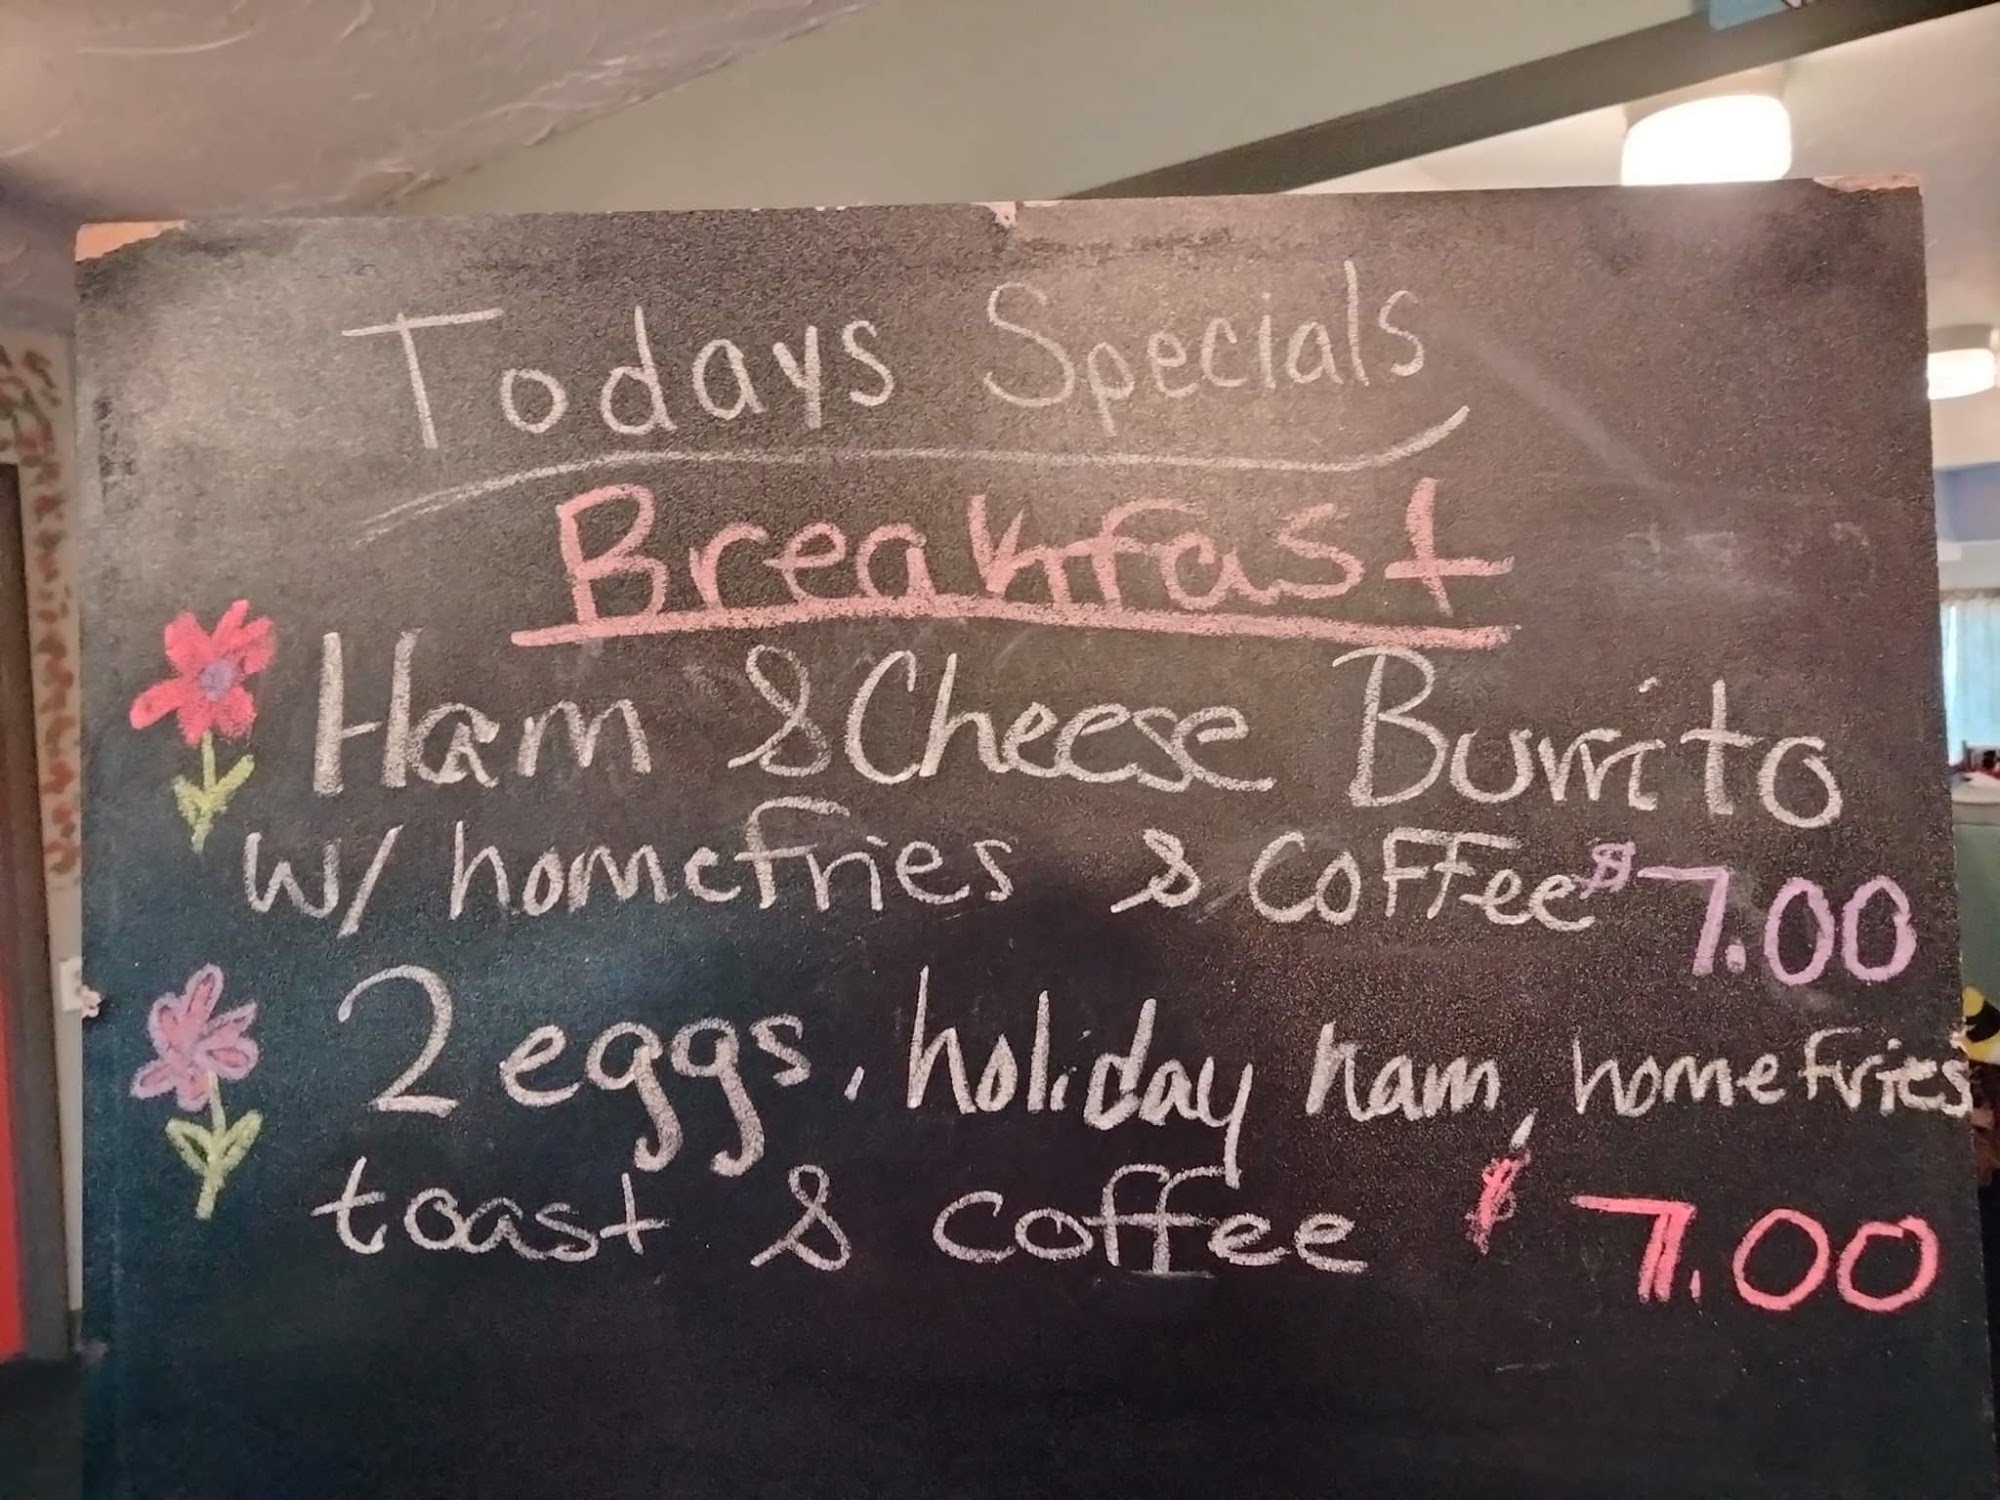 Todays Specials
Breakfast
Ham & Cheese Burrito
w/ homefries & coffee $7.00
2 eggs, holiday ham, homefries
toast & coffee $7.00